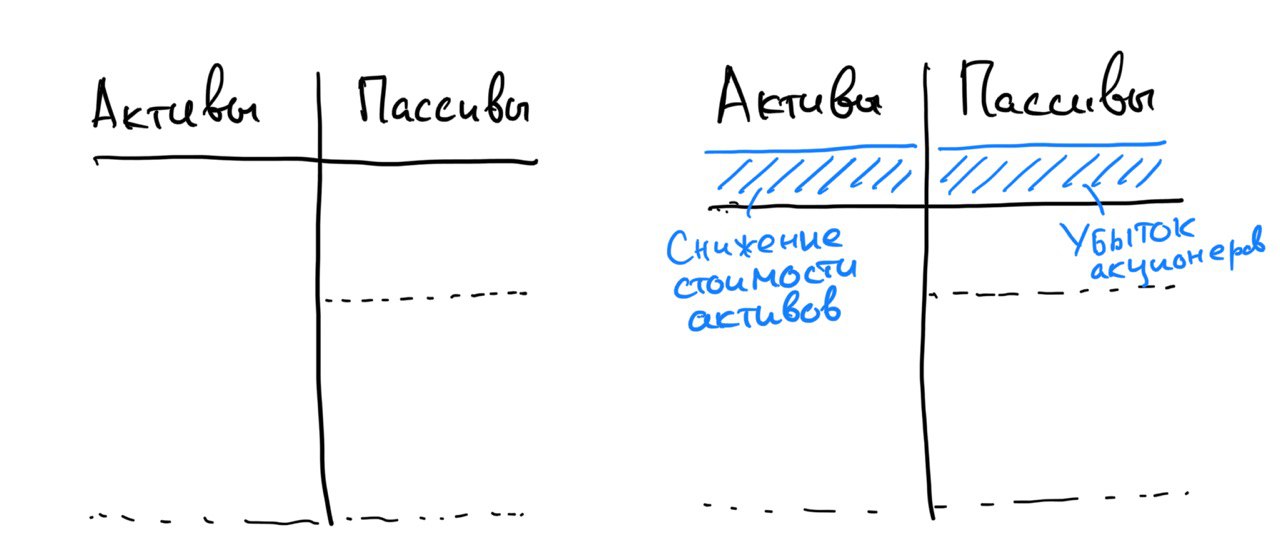 Активы Пассивы
Активы Пассивы
Снижение
стоимости
активов
Убыток
акционеров